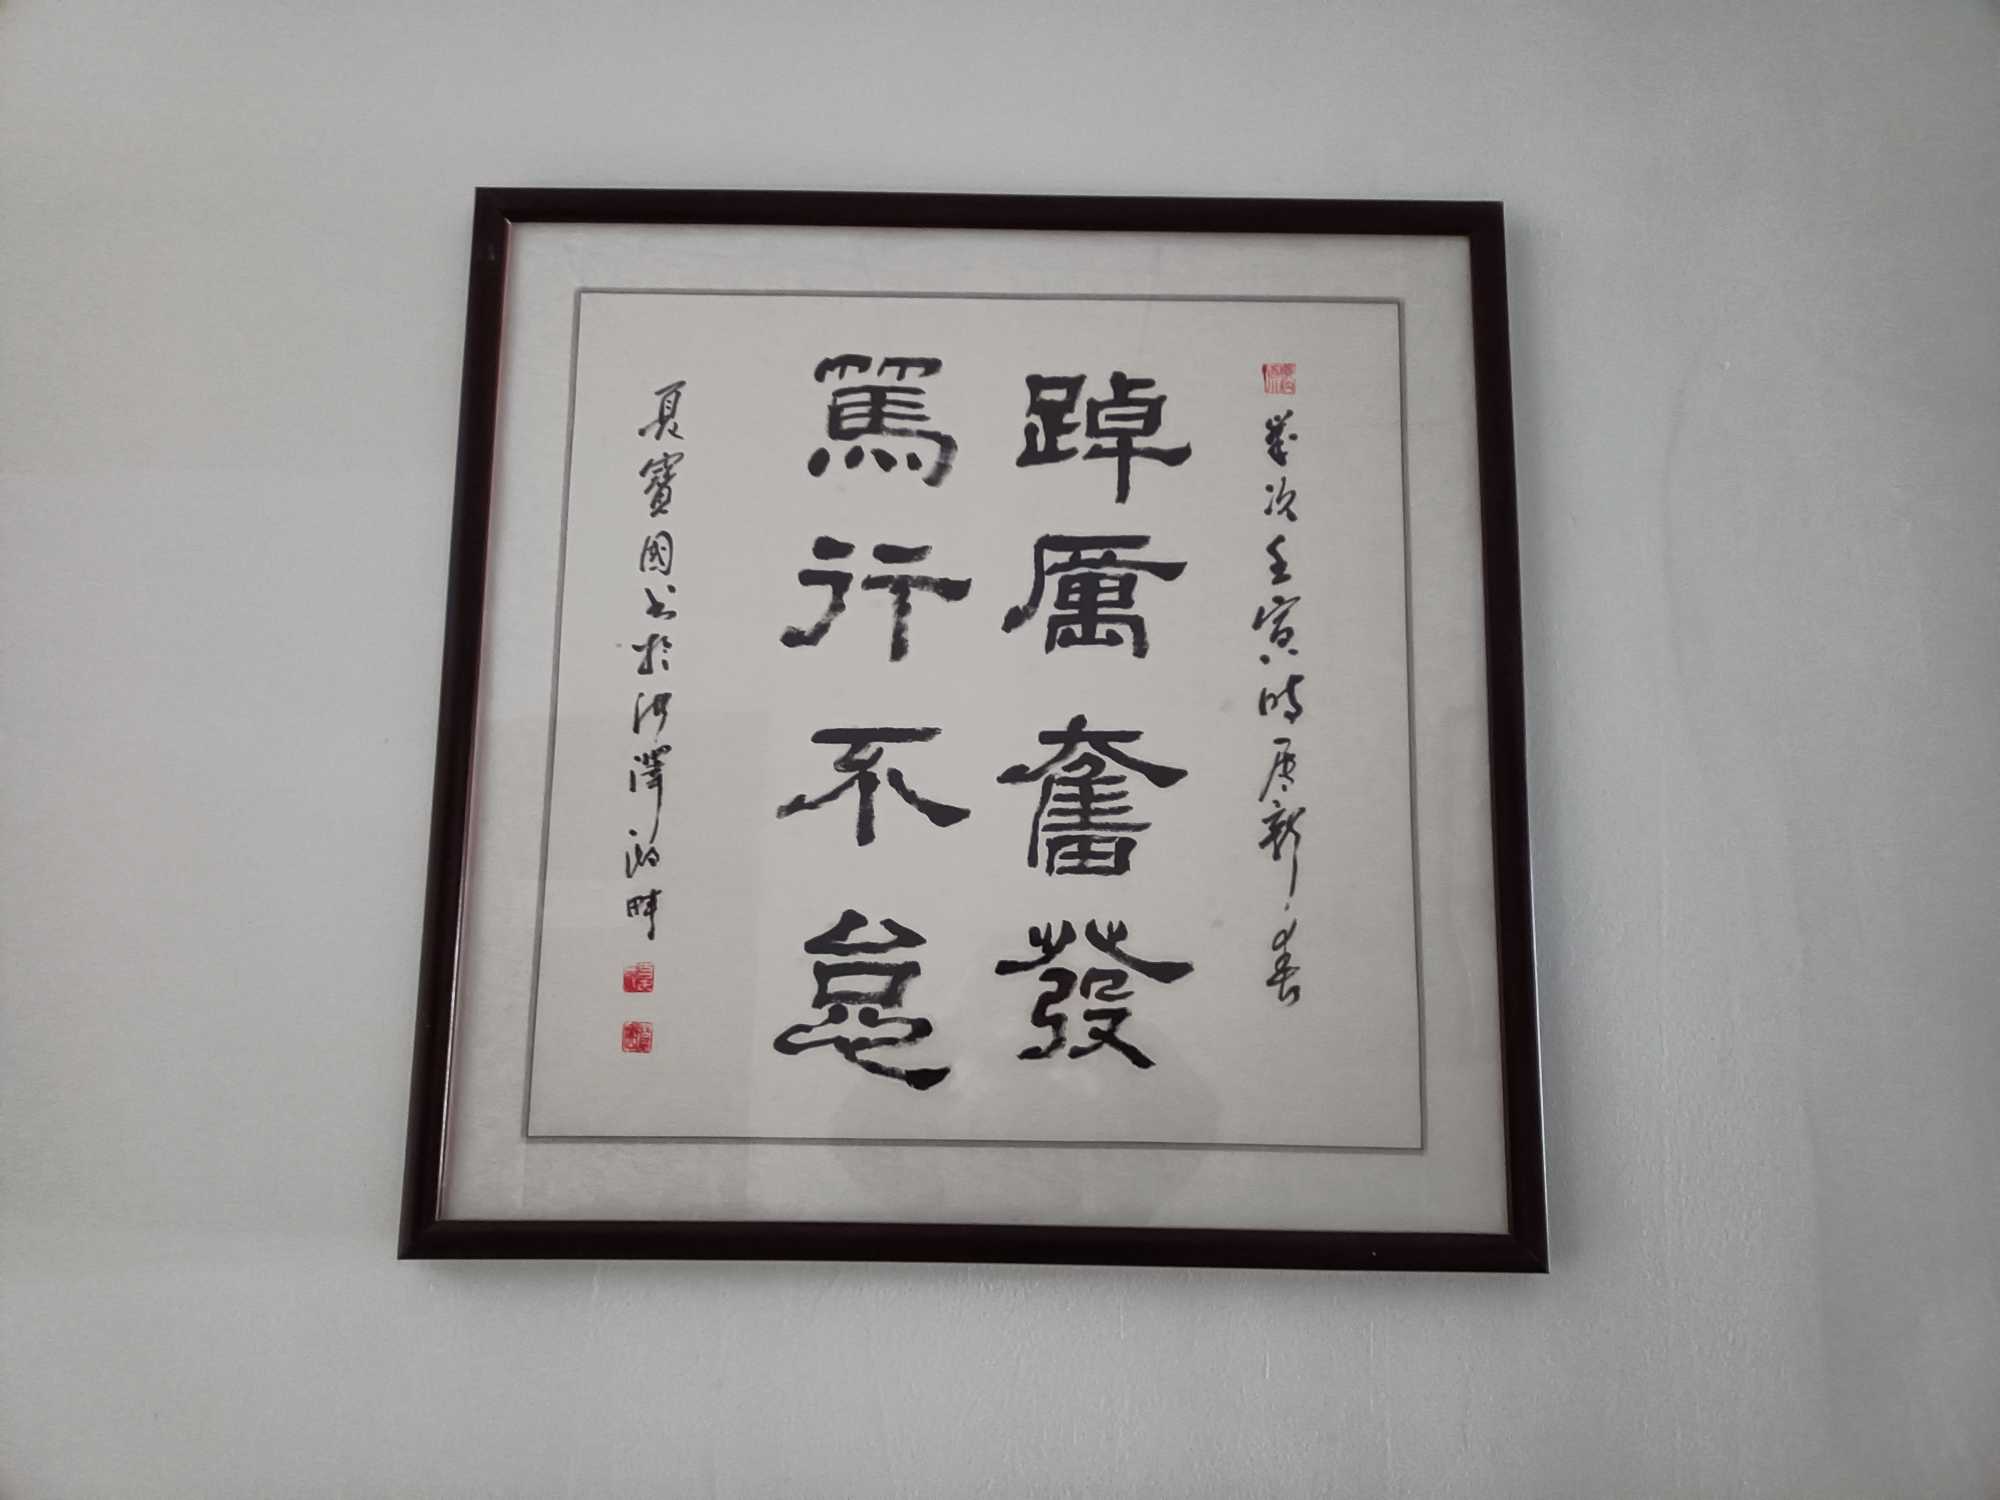 歲次壬寅時居新春
踔厲奮發
篤行不怠
夏寶國书於洪澤湖畔